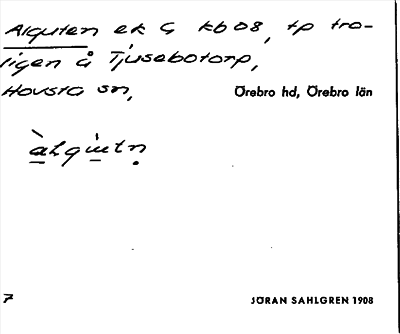 Alguten ek G kb 08, tp tro-
ligen å Tjusebotorp,
Hovsta sn, Örebro hd, Örebro län
àLgùtn
7 JÖRAN SAHLGREN 1908